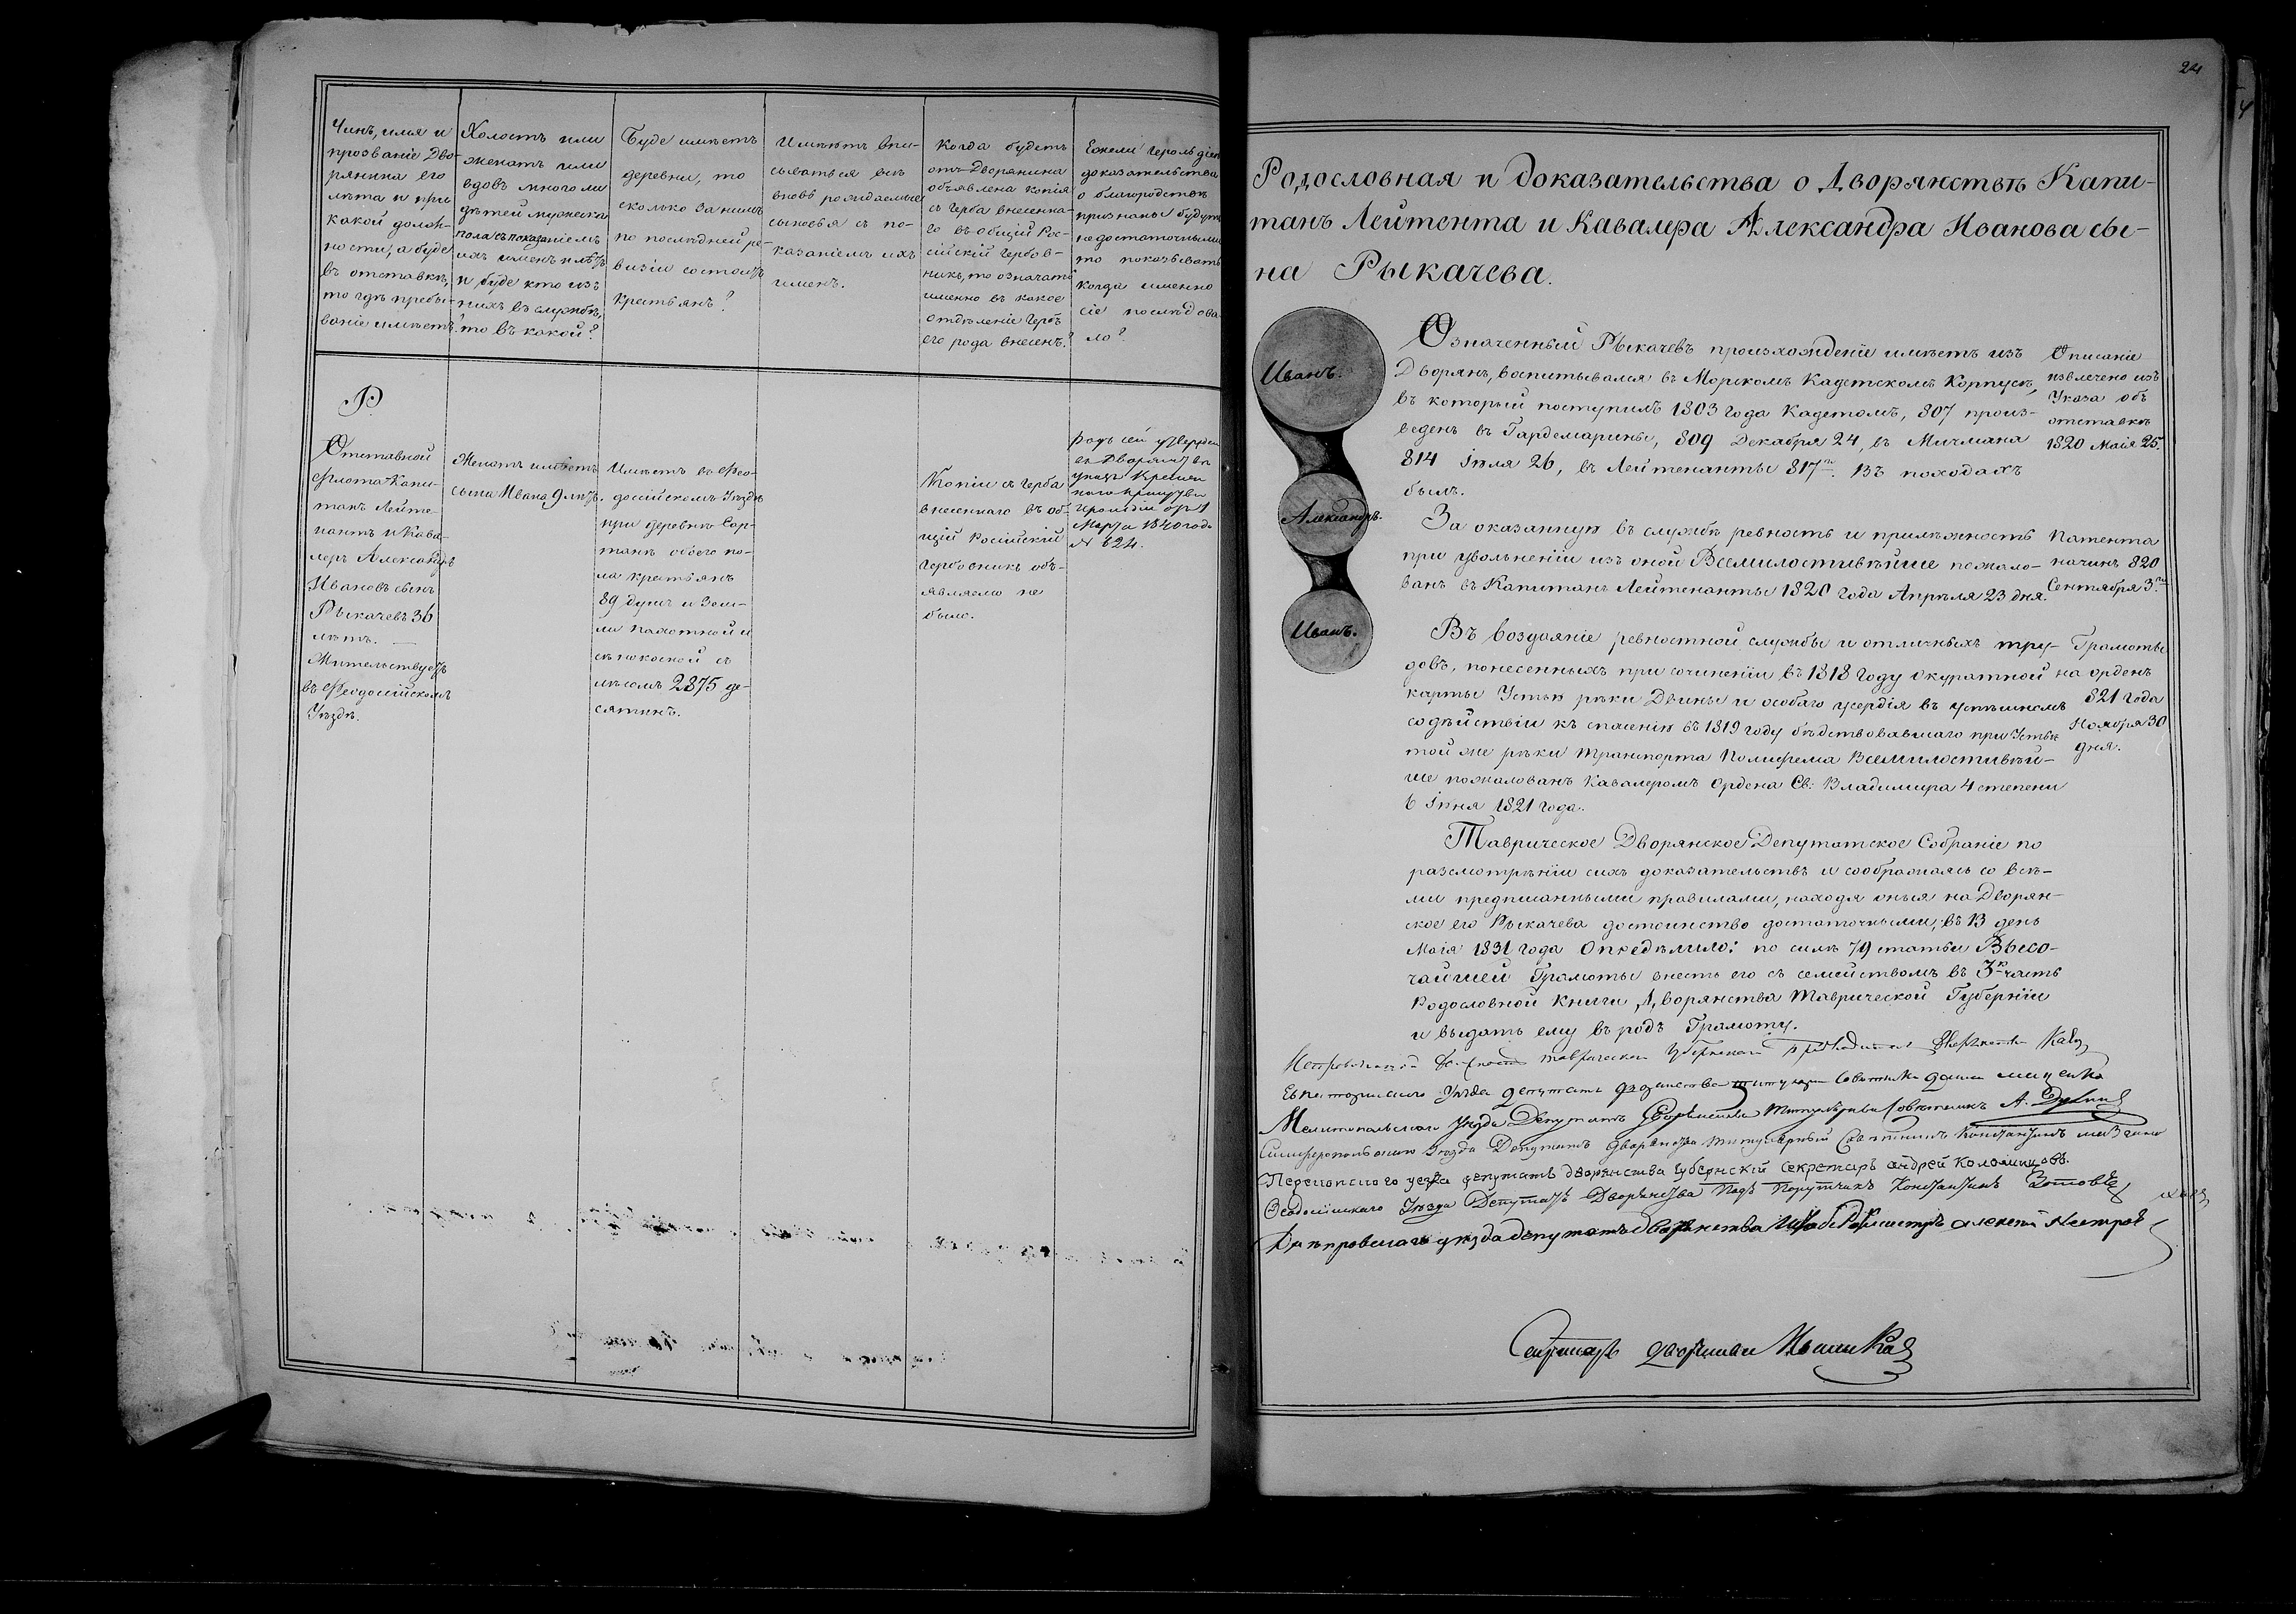 Чинъ, имя и
прозваніе Дво-
рянина его
лѣта и при
какой долж-
ности, а буде
въ отставкѣ,
то гдѣ пребы-
ваніе имѣетъ?
Холостъ или
женатъ или
вдовъ много ли
дѣтей мужеска
пола съ показаніемъ
ихъ именъ и лѣтъ
и буде кто изъ
нихъ въ службѣ,
то въ какой?
Буде имѣетъ
деревни, то
сколько за нимъ
по послѣдней ре-
визіи состоитъ
крестьянъ?
Имѣютъ впи-
сываться всѣ
вновь рождаемые
сыновья съ по-
казаніемъ ихъ
именъ.
Когда будетъ
отъ Дворянина
объявлена копія
съ герба внесенна-
го въ общій Рос-
сійскій Гербов-
никъ, то означать
именно въ какое
отдѣленіе Гербъ
его рода внесенъ?
Ежели Герольдіею
доказательства
о благородствѣ
признаны будутъ
недостаточными
то показывать
когда именно
сіе послѣдова-
ло?
Р.
Отставной
флота Капи-
танъ Лейте-
нантъ и Кава-
леръ Александръ
Ивановъ сынъ
Рыкачевъ 36
лѣтъ.
Жительствуетъ
въ Феодосійскомъ
Уѣздѣ.
Женатъ имѣетъ
сына Ивана 9 лѣтъ.
Имѣетъ въ Фео-
досійскомъ Уѣздѣ
при деревнѣ Сор-
танъ обоего по-
ла крестьянъ
89 душъ и Зем-
ли пахотной и
сѣнокосной съ
лѣсомъ 2875 де-
сятинъ.
Копіи съ герба
внесеннаго въ об-
щій Россійскій
Гербовникъ объ-
являемо не
было.
Родъ сей утвержден
въ Дворянствѣ
указъ Времен
наго присутствія
Герольдіи отъ 1
Марта 1840 года
№ 624.
24
Родословная и доказательства о Дворянствѣ Капи-
танъ Лейтента и Кавалера Александра Иванова сы-
на Рыкачева.
Иванъ.
Александръ.
Иванъ.
Означенный Рыкачевъ происхожденіе имѣетъ изъ
Дворянъ, воспитывался въ Морскомъ Кадетскомъ Корпусѣ,
въ который поступилъ 1803 года Кадетомъ, 807 произ-
веденъ въ Гардемарины, 809 Декабря 24, въ Мичмана
814 Іюля 26, въ Лейтенанты 817го. Въ походахъ
былъ.
Описаніе
извлечено изъ
Указа объ
отставкѣ
1820 Маія 25.
За оказанную въ службѣ ревность и прилѣжность
при увольненіи изъ оной Всемилостивѣйше пожало-
ванъ въ Капитанъ Лейтенанты 1820 года Апрѣля 23 дня.
Патента
на чинъ 820
Сентября 3го
Въ воздаяніе ревностной службы и отличныхъ тру-
довъ, понесенныхъ при сочиненіи въ 1818 году окуратной
карты Устья рѣки Двины и особаго усердія въ успѣшномъ
содѣйствіи къ спасенію въ 1819 году бѣдствовавшаго при Устьѣ
той же рѣки транспорта Полифема Всемилостивѣй-
ше пожалованъ Кавалеромъ Ордена Св: Владимира 4 степени
6 Іюня 1821 года.
Грамоты
на орденъ
821 года
Ноября 30
дня.
Таврическое Дворянское Депутатское Собраніе по
разсмотрѣніи сихъ доказательствъ и соображаясь со всѣ-
ми предписанными правилами, находя оныя на Дворян-
ское его Рыкачева достоинство достаточными, въ 13 день
Маія 1831 года Опредѣлило: по силѣ 79 статьи Высо-
чайшей Грамоты внесть его съ семействомъ въ 3ю часть
Родословной Книги Дворянства Таврической Губерніи
и выдать ему въ родъ Грамоту.
Таврическаго Губернскаго
Евпаторійскаго Уѣзда депутатъ дворянства титулярн совѣтникъ
Мелитопольскаго Уѣзда Депутатъ Дворянства Титулярный Совѣтникъ А.
Симферопольскаго Уѣзда Депутатъ дворянства титулярный Совѣтникъ Константинъ
Перекопскаго уезда депутатъ дворянства Губернскій Секретарь андрей Коломийцовъ.
Феодосійскаго Уѣзда Депутатъ Дворянства Подъ Порутчикъ Константинъ Зотовъ
Днѣпровскаго уѣзда депутатъ дворянства Штабсъ Ротмистръ алексей Нестров
Секретарь дворянства